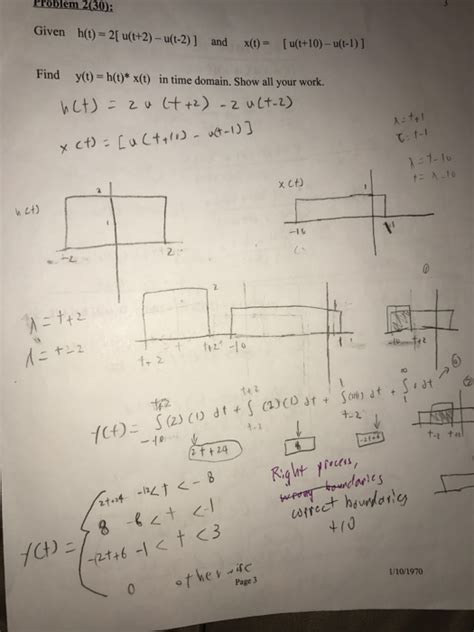 Problem 2(30):
3
Given h(t) = 2[ u(t+2) – u(t-2) ] and x(t) = [ u(t+10) – u(t-1) ]
Find y(t) = h(t)* x(t) in time domain. Show all your work.
h(t) = 2 u (t+2) - 2 u(t-2)
x(t) = [u(t+10) - u(t-1)]
λ = t+1
τ = t-1
λ = t-10
h(t)
2
1
-2
2
x(t)
1
-10
1
λ = t+2
λ = t-2
2
t+2
t+2
-10
1
1
-10
t+2
y(t) = ∫ (2)(1) dt + ∫ (2)(1) dt + ∫ dt + ∫ dt
t+2
-10
t+2
t-2
t-2
2t+24
8
-2t+6
t-2
t+2
Right process,
wrong boundaries
correct boundaries
+10
y(t) =
2t+24 -12<t<-8
8 -8<t<-1
-2t+6 -1<t<3
0 otherwise
Page 3
1/10/1970